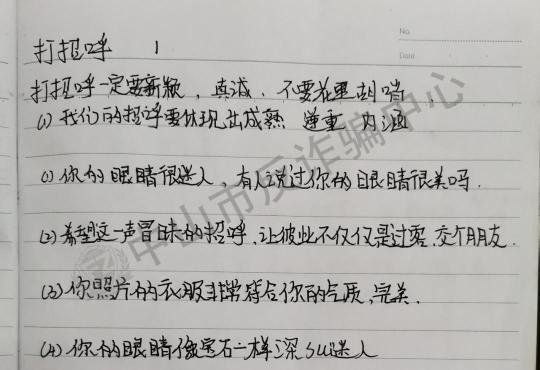 No.
Date
打招呼 1
打招呼一定要新颖，真诚．不要花里胡哨．
(1)我们的招呼要体现出成熟 稳重 内涵
(1)你的眼睛很迷人，有人说过你的眼睛很美吗．
(2)希望这一声冒昧的招呼，让彼此不仅仅是过客，交个朋友．
(3)你照片的衣服非常符合你的气质，完美．
(4)你的眼睛像宝石一样深幻迷人
中山市反诈骗中心